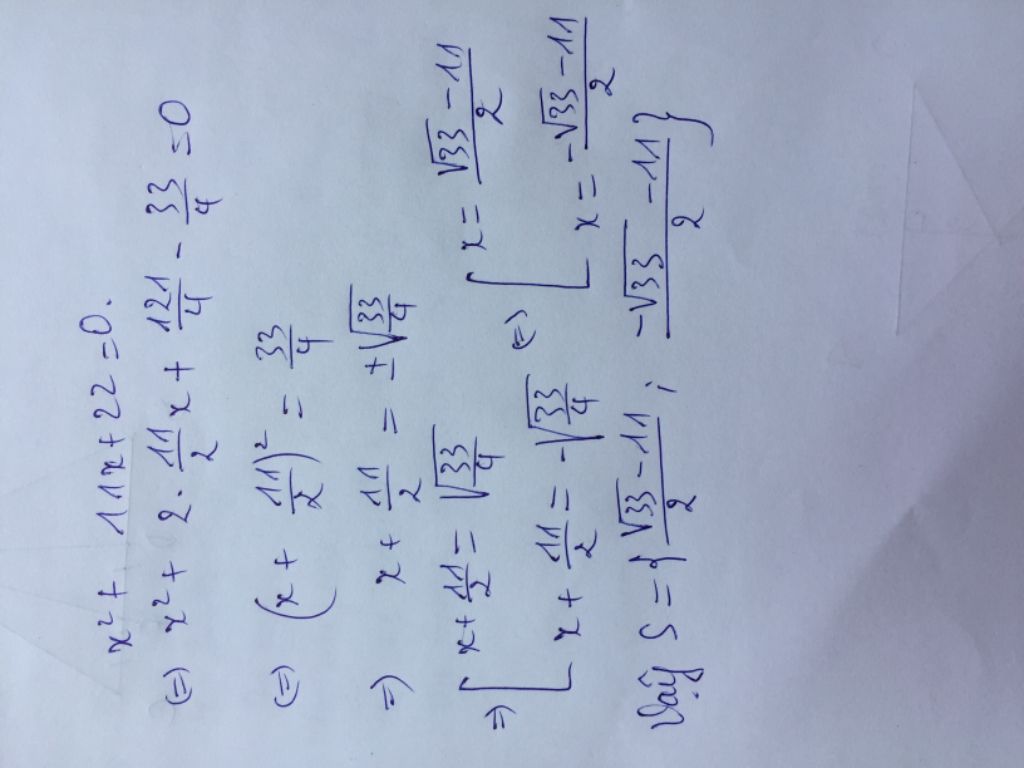 x² + 11x + 22 = 0.
(=) x² + 2 . 11/2 x + 121/4 - 33/4 = 0
(=) (x + 11/2)² = 33/4
=) x + 11/2 = ±√(33/4)
=) [ x + 11/2 = √(33/4)
x + 11/2 = -√(33/4) (=) [ x = (√33 - 11)/2
x = (-√33 - 11)/2
Vậy S = { (√33 - 11)/2 ; (-√33 - 11)/2 }